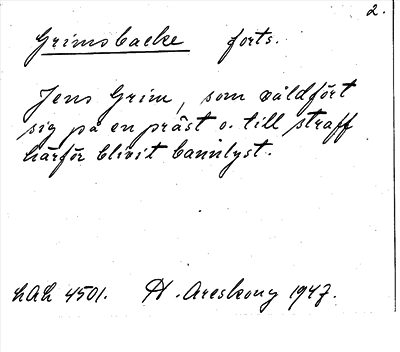 2.
Grimsbacke forts.
Jens Grim, som våldfört
sig på en präst o. till straff
härför blivit bannlyst.
LAL 4501. H. Areskoug 1947.